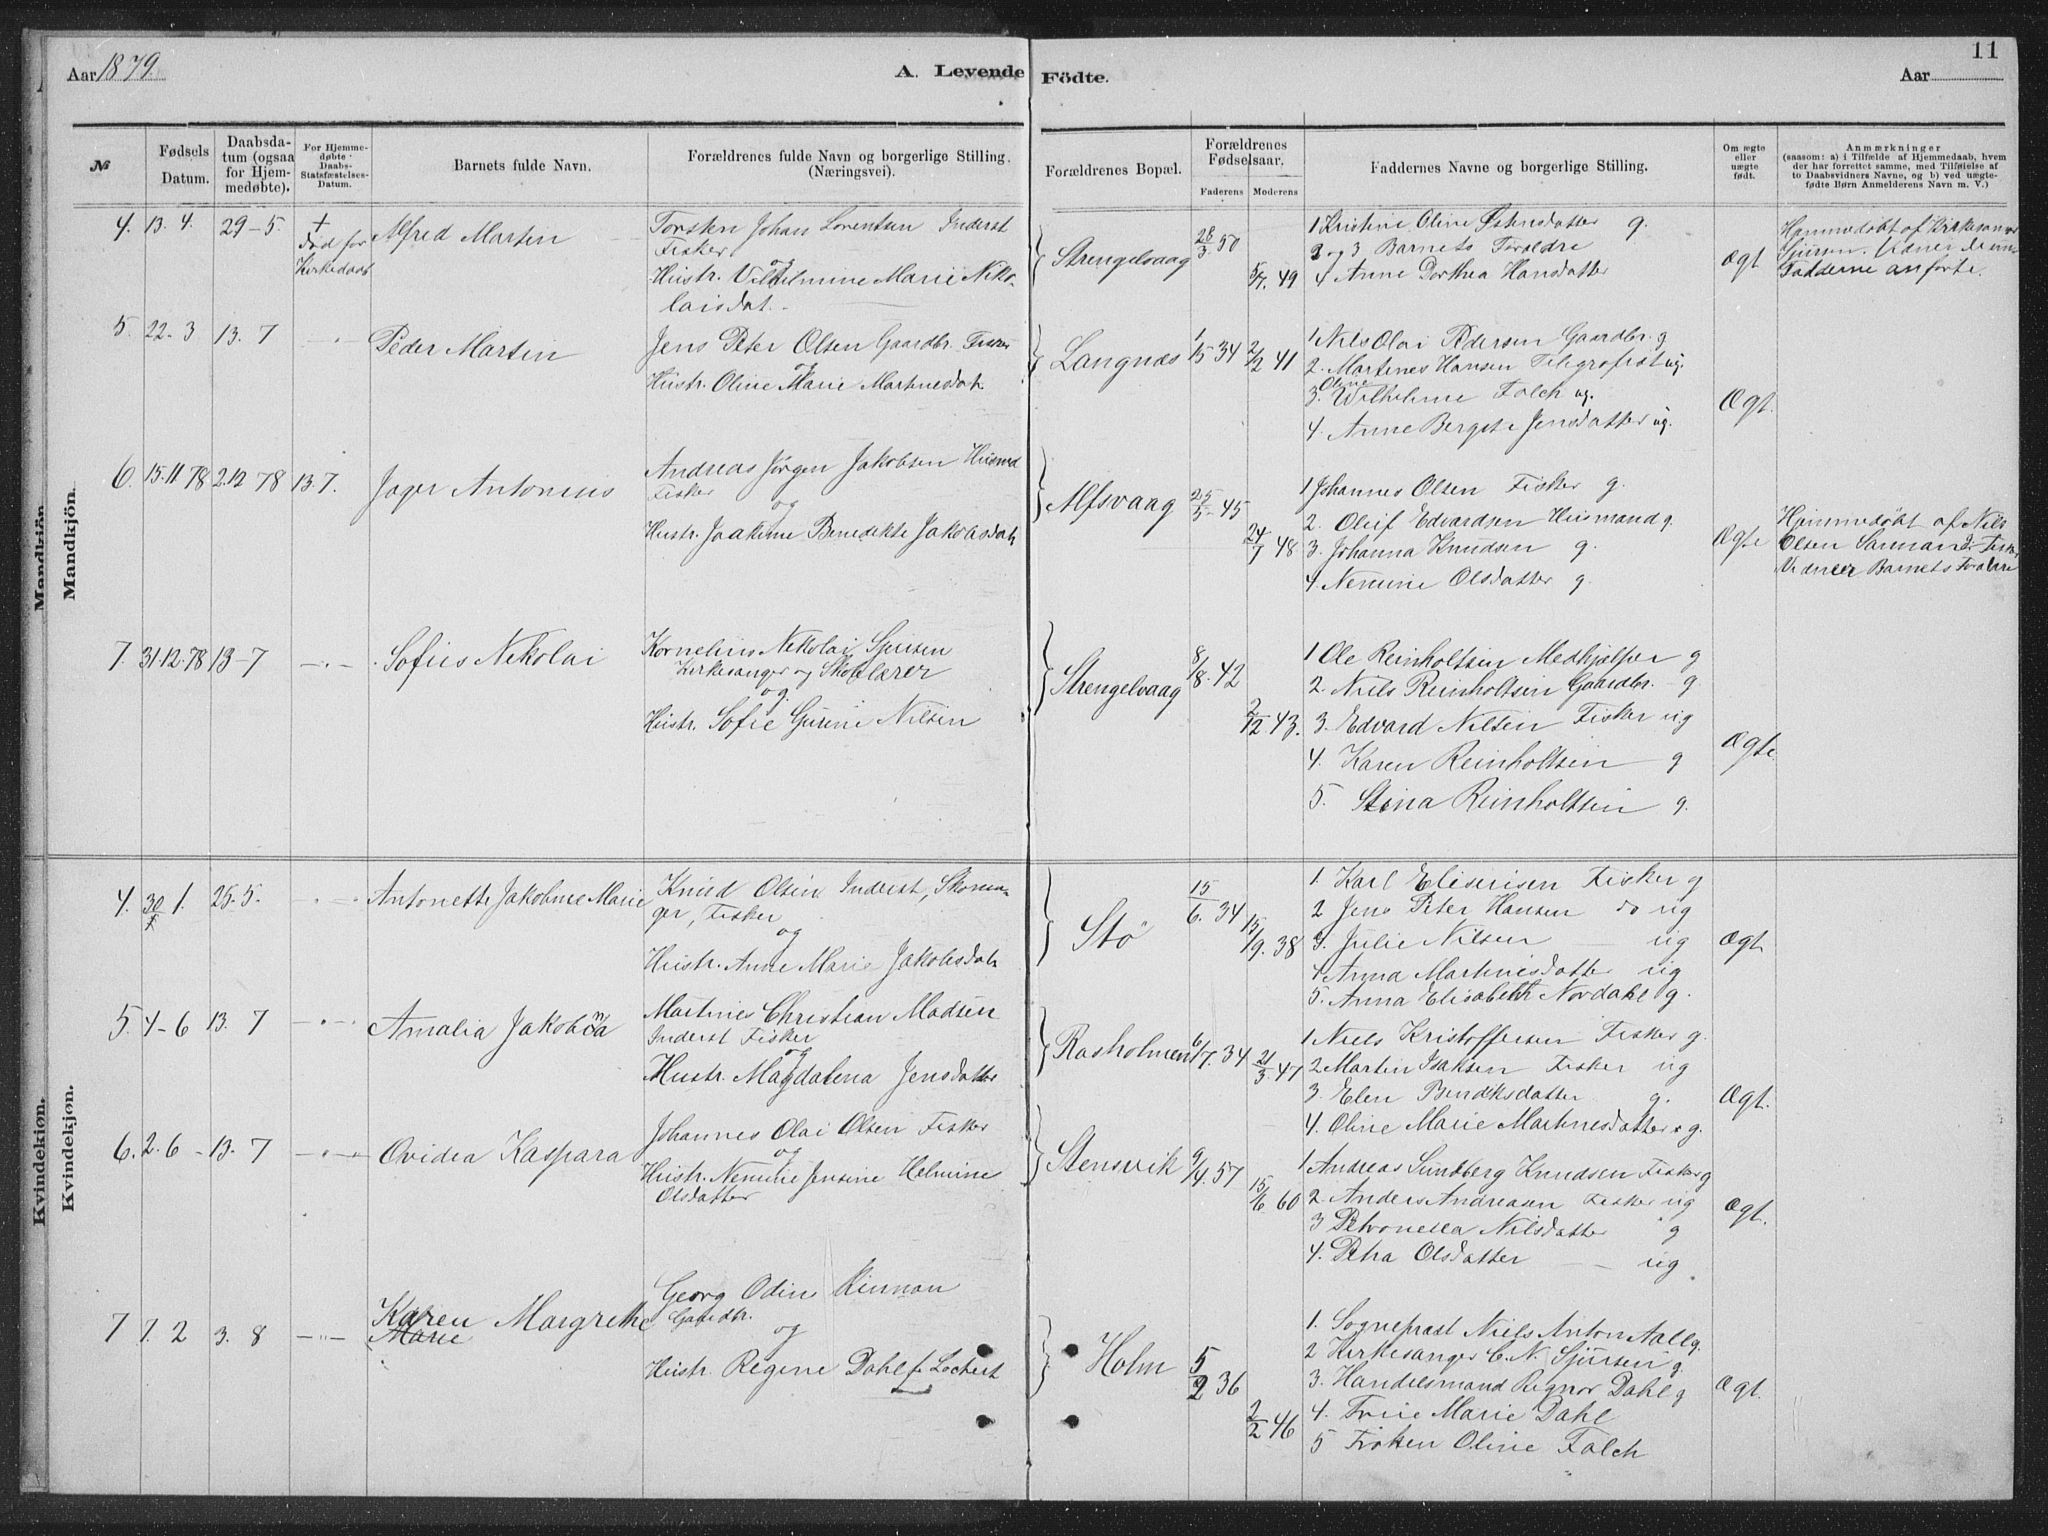 Aar 1879.
A. Levende Födte.
11
Aar
№
Fødsels Datum.
Daabsdatum (ogsaa for Hjemmedøbte).
For Hjemmedøbte Daabs-Statsfæstelses-Datum.
Barnets fulde Navn.
Forældrenes fulde Navn og borgerlige Stilling. (Næringsvei).
Forældrenes Bopæl.
Forældrenes Fødselsaar.
Faderens
Moderens
Faddernes Navne og borgerlige Stilling.
Om ægte eller uægte født.
Anmærkninger
(saasom: a) i Tilfælde af Hjemmedaab, hvem
der har forrettet samme, med Tilføielse af
to Daabsvidners Navne, og b) ved uægte-
fødte Børn Anmelderens Navn m. V.)
Mandkjön.
Mandkjön.
4. 13. 4. 29-5. + Død før Kirkedaab
Alfred Martin
Torsten Johan Lorentsen Inderst
Fisker
og
Hustr. Vilhelmine Marie Niko-
laisdat.
Strengelvaag 28/3 50 5/7. 49
1 Kristine Oline Østensdatter g.
2 og 3 Barnets Foreldre
4 Anne Dorthea Hansdatter
Ægt
Hjemmedøbt af Kirkesanger
Sjursen. Vidner de un
Fadderne anførte.
5. 22-3 13. 7
Peder Martin
Jens Peter Olsen Gaardbr. Fisker
og
Hustr. Oline Marie Martinesdat.
Langnæs 1/5 34 2/2 41
1 Nils Olai Pedersen Gaardbr. g
2. Martines Hansen Telegrafist ug.
3. Oline Wilhelmine Falch ug.
4. Anne Bergete Jensdatter ug.
Ægt.
6. 15.11 78 2.12 78 13.7.
Jager Antonius
Andreas Jørgen Jakobsen Husmd
Fisker
og
Hustr. Joakime Benedikte Jakobsdat.
Alfsvaag 25/5- 45 24/7 48
1 Johannes Olsen Fisker g.
2. Oluf Edvardsen Husmand g.
3. Johanna Knudsen g.
4. Nemine Olsdatter g.
Ægte
Hjemmedøbt af Nils
Olsen Sarman Fisker
Vidner Barnets Forældre
7. 31.12.78 13-7
Sofus Nikolai
Kornelius Nikolai Sjursen
Kirkesanger og Skolelærer
og
Hustr. Sofie Gurine Nilsen
Strengelvaag 8/8. 42 2/12 43.
1 Ole Reinholtsen Medhjælper g
2. Niels Reinholtsen Gaardbr. g.
3. Edvard Nilsen Fisker ug
4. Karen Reinholtsen g
5. Stina Reinholtsen g.
Ægte
Kvindekjön.
Kvindekjøn.
4. 30/1 1. 25.5.
Antonette Jakobine Marie
Knud Olsen Inderst, Skoma-
ger, Fisker
og
Hustr. Anne Marie Jakobsdat.
Stö 15/6. 34 15/9. 38
1. Karl Eliserisen Fisker g
2 Jens Peter Hansen do ug
3. Julie Nilsen ug
4 Anna Martinesdatter ug
5. Anna Elisabeth Nordahl g.
Ægt
5. 4-6 13. 7
Amalia Jakobina
Martines Christian Madsen
Inderst Fisker
og
Hustr. Magdalena Jensdatter
Rasholmen 6/7. 34 21/3. 47
1 Niels Kristoffersen Fisker g.
2 Martin Isaksen Fisker ug
3. Elen Bendiksdatter g.
4. Oline Marie Martinesdatter g.
Ægt.
6. 2. 6 - 13. 7
Ovidea Kaspara
Johannes Olai Olsen Fisker
og
Hustr. Nemine Jensine Helmine
Olsdatter
Stensvik 9/4. 57 15/6. 60
1 Andreas Sundberg Knudsen Fisker g
2. Anders Andreasen Fisker ug
3 Petronella Nilsdatter g
4. Petra Olsdatter ug
Ægt.
7 7. 2 3. 8
Karen Margrethe
Marie
Georg Odin Kinman
Gaardbr.
og
Hustr. Regine Dahl f. Lochert
Holm 5/2 36 2/2 46
1. Sogneprest Niels Anton Aall g.
2 Kirkesanger C. N. Sjursen g.
3. Handelsmand Regnor Dahl g
4. Frue Marie Dahl
5 Frøken Oline Falch
Ægt.